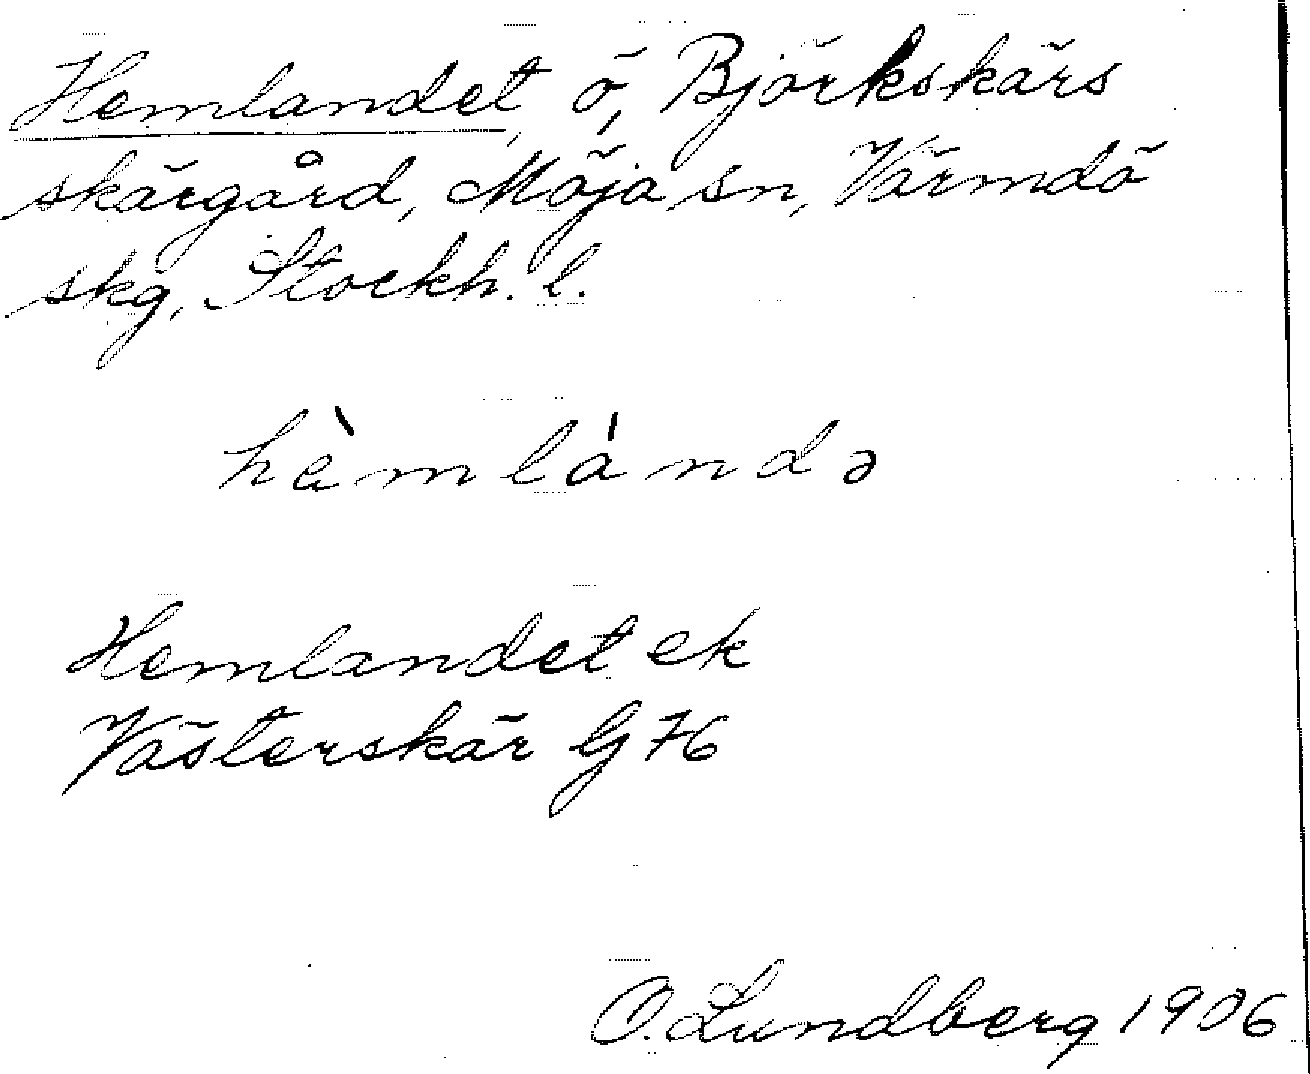 Hemlandet, ö, Björkskärs
skärgård, Möja sn, Värmdö
skg, Stockh. l.
hèmlándə
Hemlandet ek
Västerskär G 76
O. Lundberg 1906